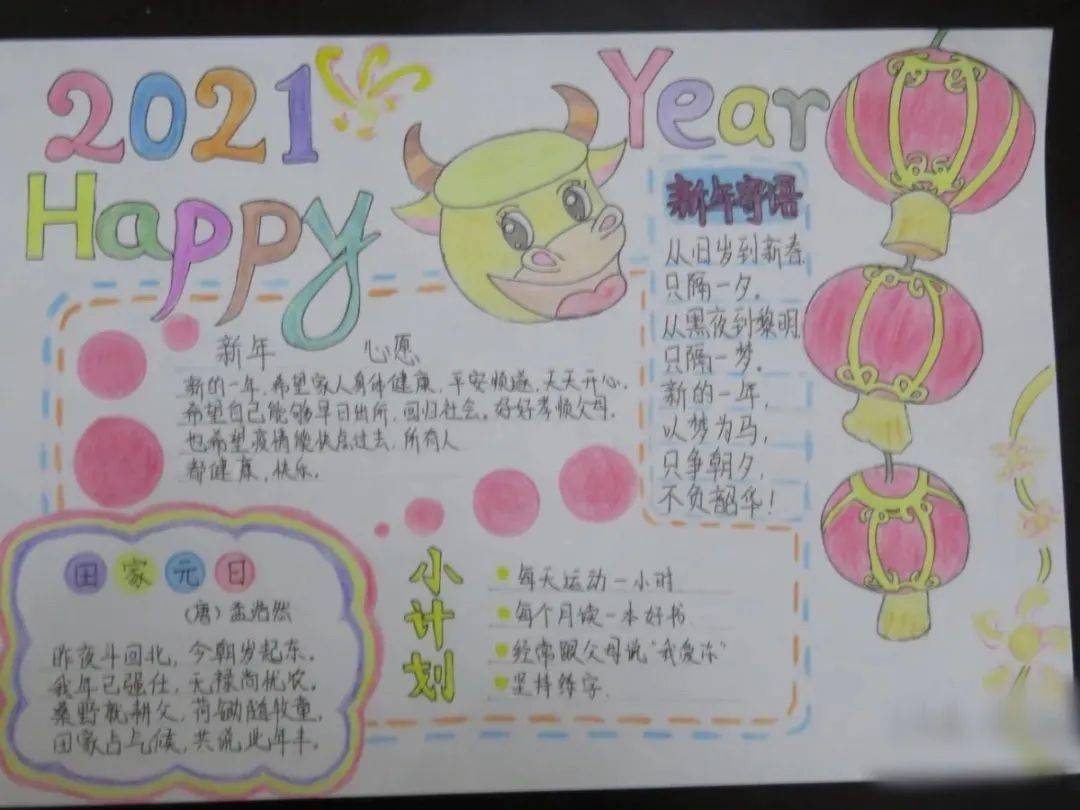 2021
Happy
Year
新年寄语
从旧岁到新春
只隔一夕。
从黑夜到黎明
只隔一梦。
新的一年,
以梦为马,
只争朝夕,
不负韶华!
新年 心愿
新的一年,希望家人身体健康,平安顺遂,天天开心。
希望自己能够早日出所,回归社会。好好孝顺父母。
也希望疫情能快点过去,所有人
都健康,快乐。
田家元日
(唐)孟浩然
昨夜斗回北,今朝岁起东。
我年已强仕,无禄尚忧农。
桑野就耕父,荷锄随牧童。
田家占气候,共说此年丰。
小计划
每天运动一小时
每个月读一本好书
经常跟父母说"我爱你"
坚持练字.